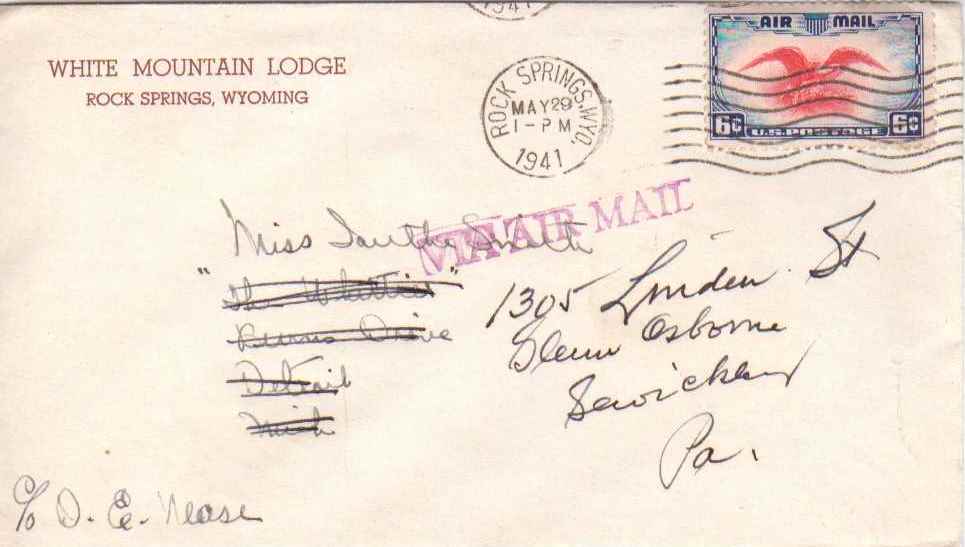 1941
WHITE MOUNTAIN LODGE
ROCK SPRINGS, WYOMING
ROCK SPRINGS, WYO.
MAY 29
1-PM
1941
AIR MAIL
6¢ U.S. POSTAGE 6¢
VIA AIR MAIL
Miss Ianthe Smith
"The Whittier"
Burns Drive
Detroit
Mich
1305 Linden St
Glenn Osborne
Sewickley
Pa.
c/o D. E. Nease